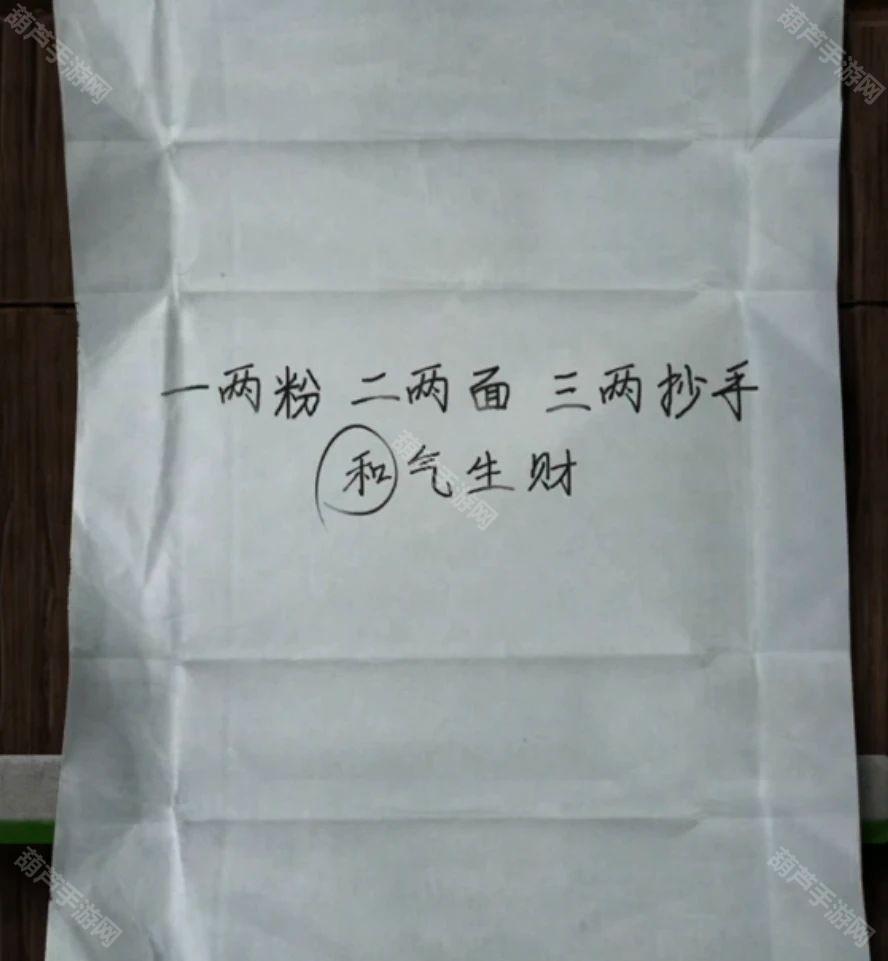 葫芦手游网 葫芦手游网
一两粉 二两面 三两抄手
和气生财
葫芦手游网
葫芦手游网 葫芦手游网